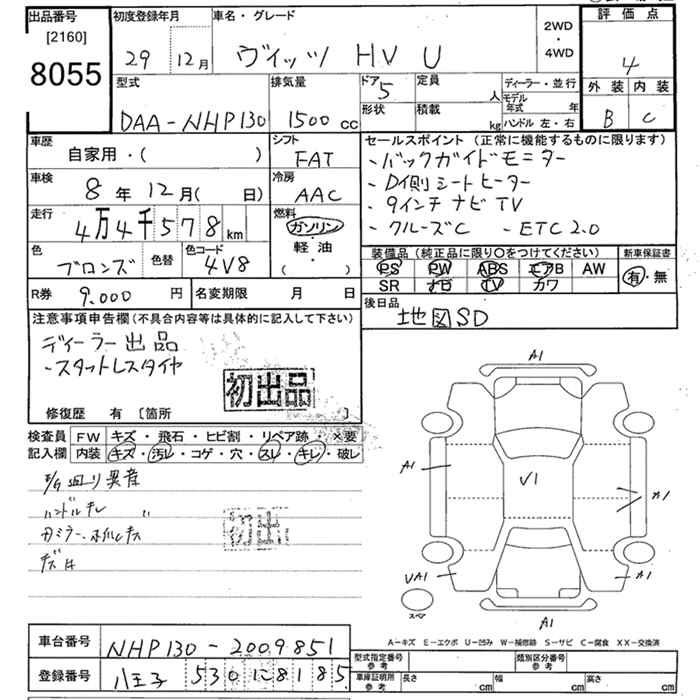 出品番号 初度登録年月 車名・グレード 評価点
[2160]
8055
29 12月 ヴィッツ HV U 2WD・4WD 4
型式 排気量 ドア 5 定員 人 ディーラー・並行 外装 内装
モデル年式 年
DAA-NHP130 1500cc 形状 積載 kg ハンドル 左・右 B C
車歴 シフト セールスポイント(正常に機能するものに限ります)
自家用・( ) FAT ・バックガイドモニター
車検 冷房 ・D(側シートヒーター
8年12月( 日) AAC ・9インチ ナビ TV
走行 燃料 ・クルーズC ・ETC 2.0
4万4千578km ガソリン
軽油
・( )
色 色替 色コード 装備品(純正品に限り○をつけてください) 新車保証書
ブロンズ 4V8 PS PW ABS エアB AW 有・無
SR ナビ TV カワ
R券 9.000円 名変期限 月 日 後日品
地図SD
注意事項申告欄(不具合内容等は具体的に記入して下さい)
ディーラー出品
・スタットレスタイヤ
初出品
修復歴 有〔箇所 〕
検査員 FW キズ・飛石・ヒビ割・リペア跡・×要
記入欄 内装 キズ・汚レ・コゲ・穴・スレ・キレ・破レ
E/G回り異音
ハンドルキレ 〃
初出
A1
A1 V1 A1
VA1 A1
スペア
A1
A-キズ E-エクボ U-凹み W-補修跡 S-サビ C-腐食 XX-交換済
車台番号 NHP130-2009851
登録番号 八王子 530 に 8185
型式指定番号 参考 類別区分番号 参考
車庫証明所 参考 長さ cm 幅 cm 高さ cm